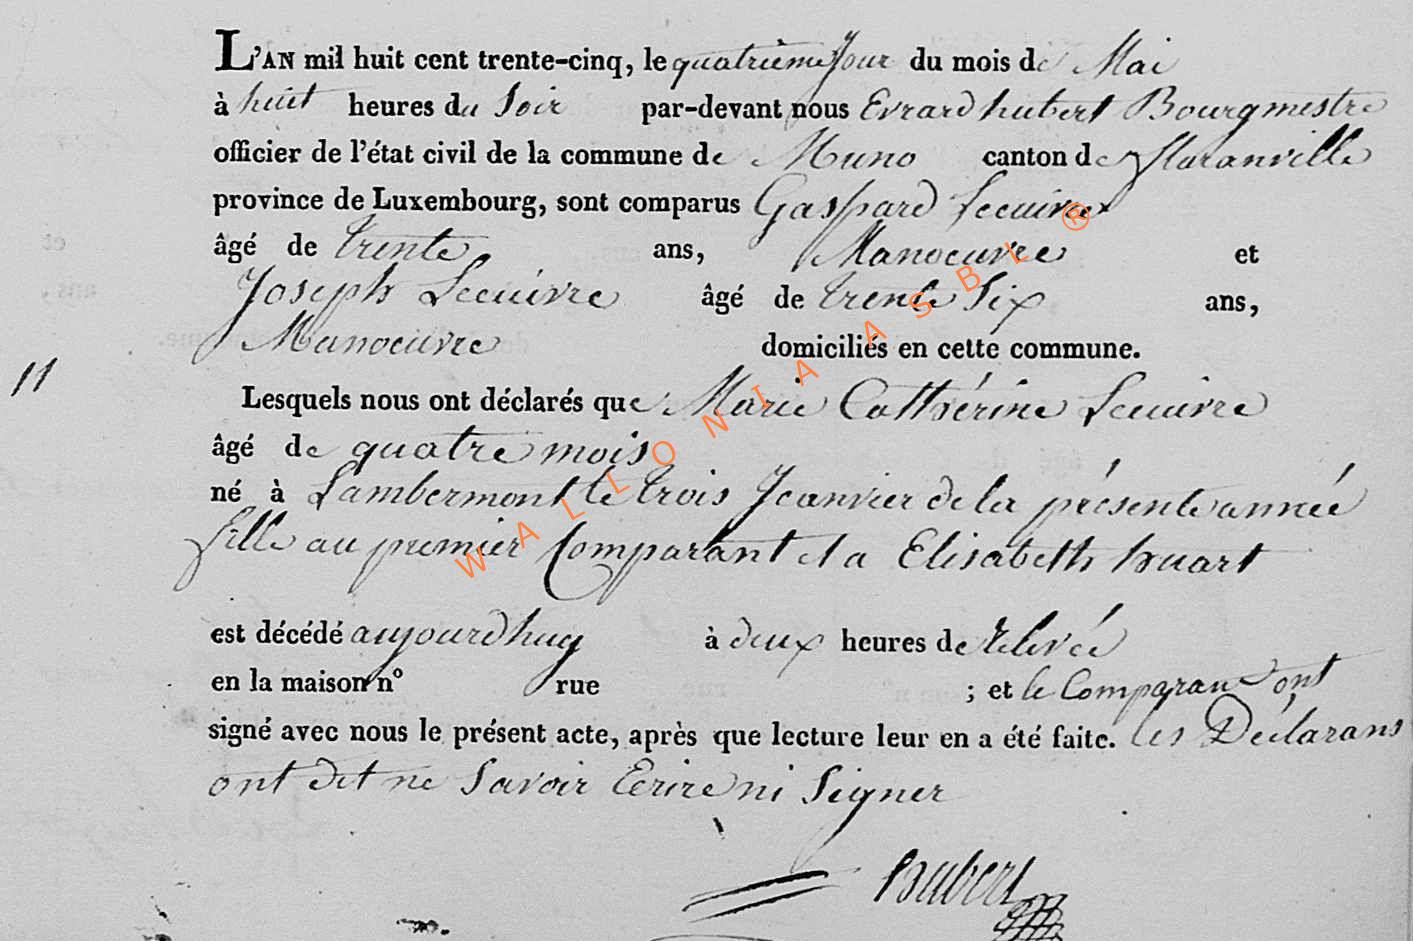 L'AN mil huit cent trente-cinq, le quatrième Jour du mois de Mai
à huit heures du Soir par-devant nous Evrard hubert Bourgmestre
officier de l'état civil de la commune de Muno canton de floranville
province de Luxembourg, sont comparus Gaspard Lecuivre
âgé de trente ans, Manoeuvre et
Joseph Lecuivre âgé de trente Six ans,
Manoeuvre domiciliés en cette commune.
11
Lesquels nous ont déclarés que Marie Cathérine Lecuivre
âgé de quatre mois
né à Lambermont le trois Jeanvier de la présente année
fille au premier Comparant et a Elisabeth huart
est décédé aujourdhuy à deux heures de relevée
en la maison n° rue ; et le Comparant ont
signé avec nous le présent acte, après que lecture leur en a été faite. les Déclarans
ont dit ne Savoir Ecrire ni Signer
hubert
WALLONIA ASBL ®